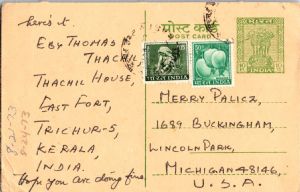 पोस्ट कार्ड
POST CARD
here's it.
EBY THOMAS
THACHIL
THACHIL HOUSE,
EAST FORT,
TRICHUR-5,
KERALA,
INDIA.
Hope you are doing fine.
8-21-73
8-21-73
भारत INDIA
50
भारत INDIA
MERRY PALICZ,
1689 BUCKINGHAM,
LINCOLN PARK,
MICHIGAN 48146,
U.S.A.